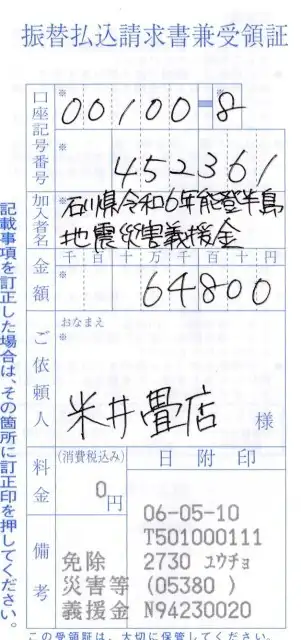 振替払込請求書兼受領証
口座記号番号
※
00100-8
※
452361
加入者名
石川県令和6年能登半島
地震災害義援金
金額
千百十万千百十円
※
64800
ご依頼人
おなまえ
※
米井畳店
様
料金
(消費税込み)
0円
日附印
備考
免除
災害等
義援金
06-05-10
T501000111
2730 ユウチョ
(05380 )
N94230020
記載事項を訂正した場合は、その箇所に訂正印を押してください。
この受領証は、大切に保管してください。